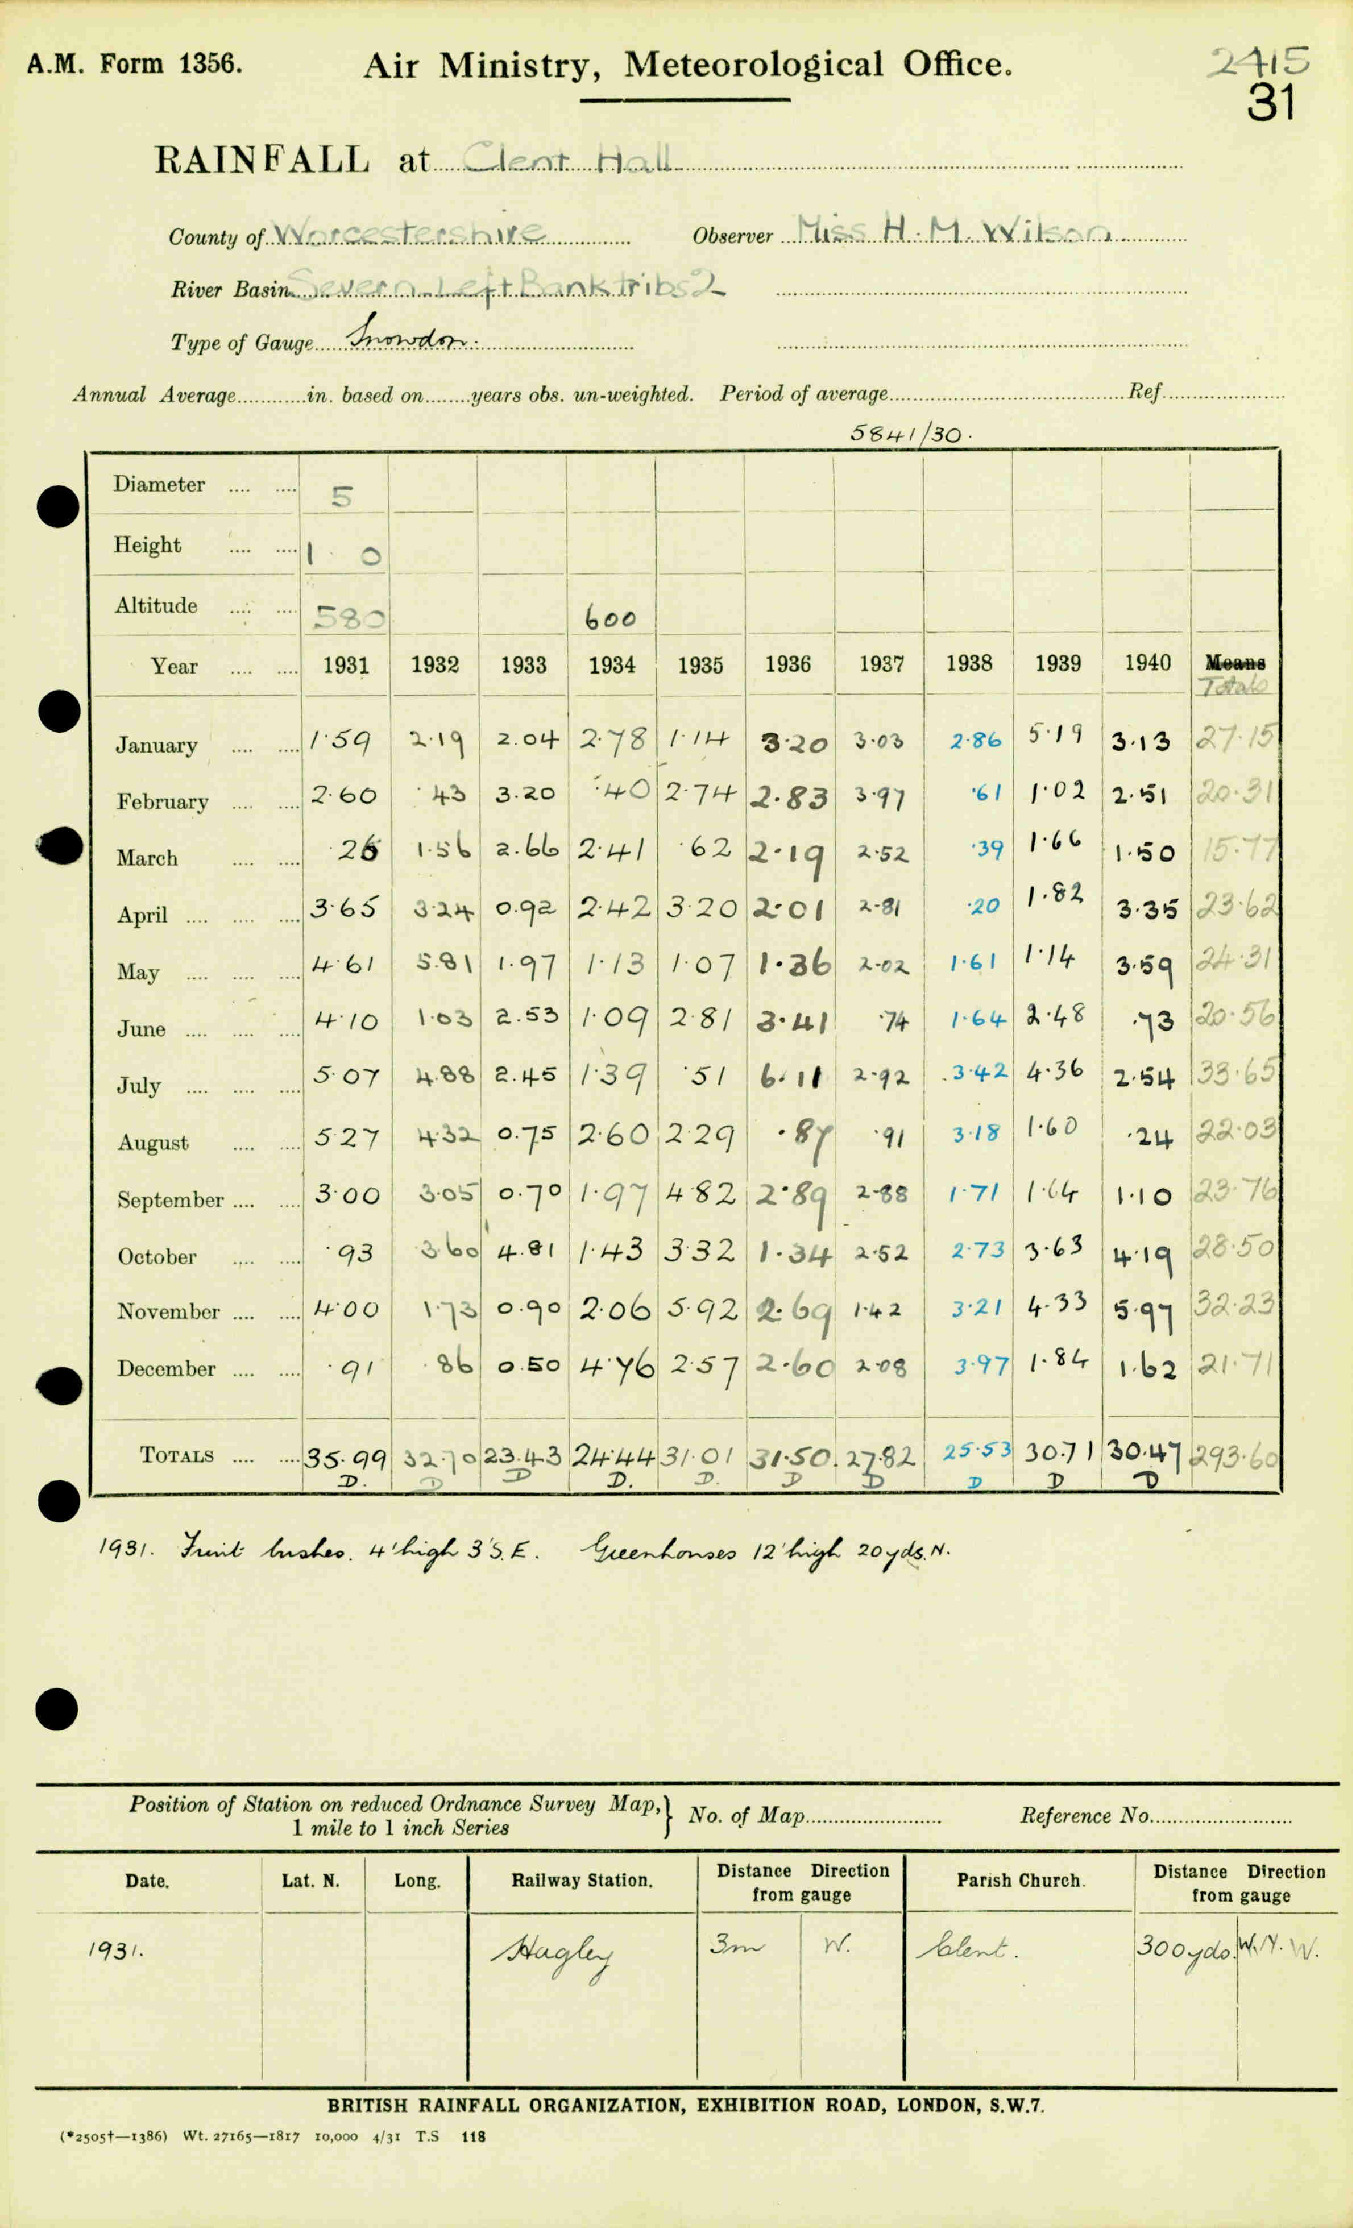 A.M. Form 1356. Air Ministry, Meteorological Office. 2415
31
RAINFALL at Clent Hall
County of Worcestershire Observer Miss H. M. Wilson
River Basin Severn Left Bank tribs 2
Type of Gauge Snowdon.
Annual Average in. based on years obs. un-weighted. Period of average Ref.
5841/30.
Diameter 5
Height 1 0
Altitude 580 600
Year 1931 1932 1933 1934 1935 1936 1937 1938 1939 1940 Means
Totals
January 1·59 2·19 2.04 2·78 1·14 3·20 3·03 2·86 5·19 3·13 27·15
February 2·60 ·43 3.20 ·40 2·74 2·83 3·97 ·61 1·02 2·51 20·31
March ·26 1·56 2.66 2·41 ·62 2·19 2·52 ·39 1·66 1·50 15·77
April 3·65 3·24 0.92 2·42 3·20 2·01 2·81 ·20 1·82 3·35 23·62
May 4·61 5·81 1.97 1·13 1·07 1·36 2·02 1·61 1·14 3·59 24·31
June 4·10 1·03 2.53 1·09 2·81 3·41 ·74 1·64 2·48 ·73 20·56
July 5·07 4·88 2.45 1·39 ·51 6·11 2·92 3·42 4·36 2·54 33·65
August 5·27 4·32 0.75 2·60 2·29 ·87 ·91 3·18 1·60 ·24 22·03
September 3·00 3·05 0.70 1·97 4·82 2·89 2·88 1·71 1·64 1·10 23·76
October ·93 3·60 4.81 1·43 3·32 1·34 2·52 2·73 3·63 4·19 28·50
November 4·00 1·73 0.90 2·06 5·92 2·69 1·42 3·21 4·33 5·97 32·23
December ·91 ·86 0.50 4·76 2·57 2·60 2·08 3·97 1·84 1·62 21·71
TOTALS 35·99 32·70 23.43 24·44 31·01 31·50 27·82 25·53 30·71 30·47 293·60
D. D D D. D. D D D D D
1931. Fruit bushes. 4' high 3' S.E. Greenhouses 12' high 20 yds. N.
Position of Station on reduced Ordnance Survey Map,} No. of Map Reference No.
1 mile to 1 inch Series
Date. Lat. N. Long. Railway Station. Distance Direction from gauge Parish Church. Distance Direction from gauge
1931. Hagley 3m W. Clent. 300yds. W.N.W.
BRITISH RAINFALL ORGANIZATION, EXHIBITION ROAD, LONDON, S.W.7.
(*2505†—1386) Wt. 27165—1817 10,000 4/31 T.S 118